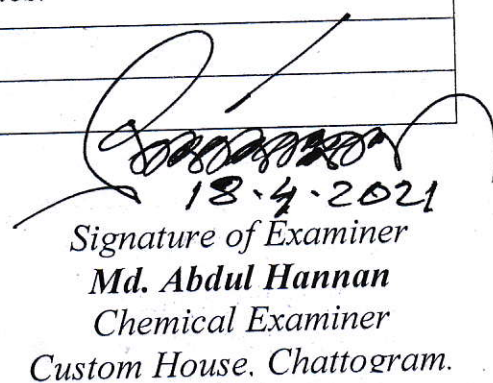 18.4.2021
Signature of Examiner
Md. Abdul Hannan
Chemical Examiner
Custom House, Chattogram.